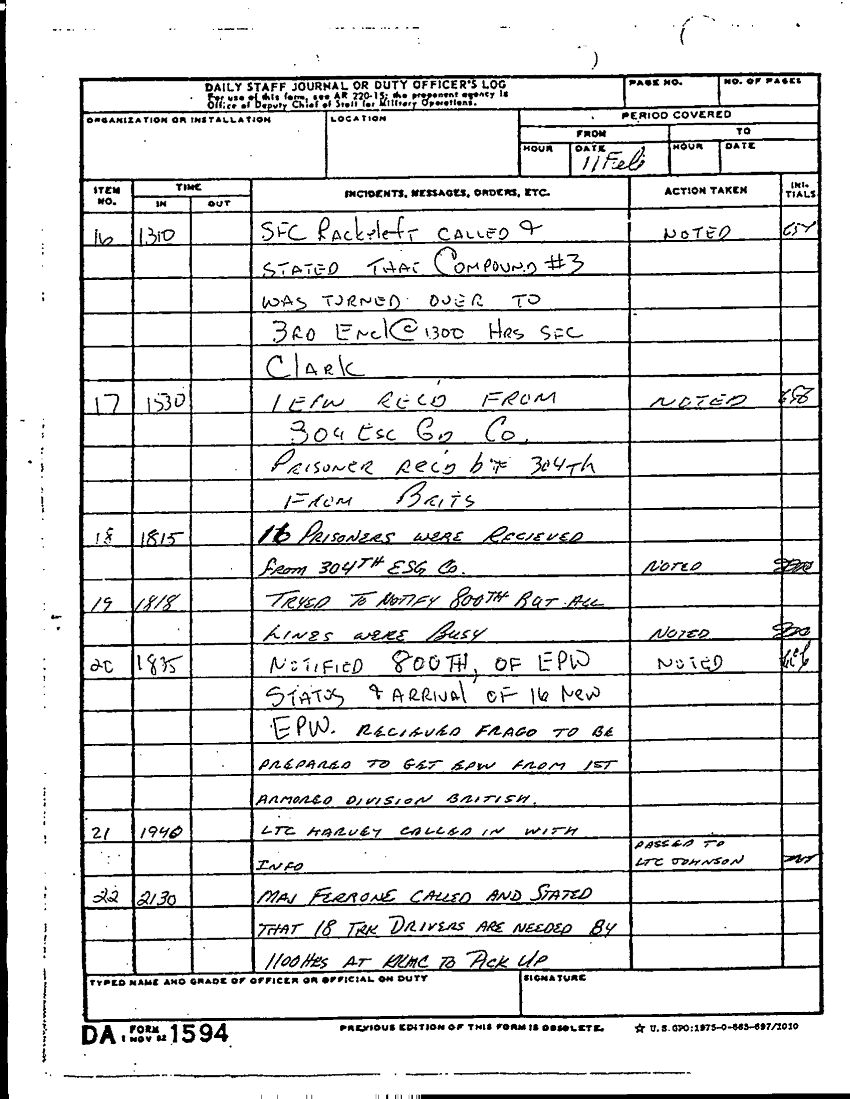 DAILY STAFF JOURNAL OR DUTY OFFICER'S LOG
For use of this form, see AR 220-15; the proponent agency is
Office of Deputy Chief of Staff for Military Operations.
PAGE NO.
NO. OF PAGES
ORGANIZATION OR INSTALLATION
LOCATION
PERIOD COVERED
FROM
TO
HOUR
DATE
HOUR
DATE
11 Feb
ITEM NO.
TIME
IN
OUT
INCIDENTS, MESSAGES, ORDERS, ETC.
ACTION TAKEN
INI-TIALS
16 1310 SFC Rackleft CALLED & NOTED
STATED THAT COMPOUND #3
WAS TURNED OVER TO
3RD Encl @ 1300 HRS SFC
CLARK
17 1530 1 EPW RECD FROM NOTED
304 ESC GD Co.
PRISONER REC'D by 304th
FROM BRITS
18 1815 16 PRISONERS WERE RECIEVED
From 304TH ESG Co. NOTED
19 1818 TRYED TO NOTIFY 800TH BUT ALL
LINES WERE BUSY NOTED
20 1835 NOTIFIED 800TH, OF EPW NOTED
STATUS & ARRIVAL OF 16 NEW
EPW. RECIEVED FRAGO TO BE
PREPARED TO GET EPW FROM 1ST
ARMORED DIVISION BRITISH.
21 1940 LTC HARVEY CALLED IN WITH
INFO PASSED TO LTC JOHNSON
22 2130 MAJ FERRONE CALLED AND STATED
THAT 18 TRK DRIVERS ARE NEEDED BY
1100 HRS AT KKMC TO PICK UP
TYPED NAME AND GRADE OF OFFICER OR OFFICIAL ON DUTY
SIGNATURE
DA FORM 1 NOV 62 1594
PREVIOUS EDITION OF THIS FORM IS OBSOLETE.
☆ U.S. GPO:1975-0-665-697/2010